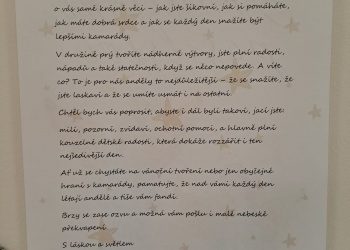 o vás samé krásné věci – jak jste šikovní, jak si pomáháte,
jak máte dobrá srdce a jak se každý den snažíte být
lepšími kamarády.
V družině prý tvoříte nádherné výtvory, jste plní radosti,
nápadů a také statečnosti, když se něco nepovede. A víte
co? To je pro nás anděly to nejdůležitější – že se snažíte, že
jste laskaví a že se umíte usmát i na ostatní.
Chtěl bych vás poprosit, abyste i dál byli takoví, jací jste:
milí, pozorní, zvídaví, ochotní pomoci, a hlavně plní
kouzelné dětské radosti, která dokáže rozzářit i ten
nejšedivější den.
Ať už se chystáte na vánoční tvoření nebo jen obyčejné
hraní s kamarády, pamatujte, že nad vámi každý den
létají andělé a tiše vám fandí.
Brzy se zase ozvu a možná vám pošlu i malé nebeské
překvapení.
S láskou a světlem